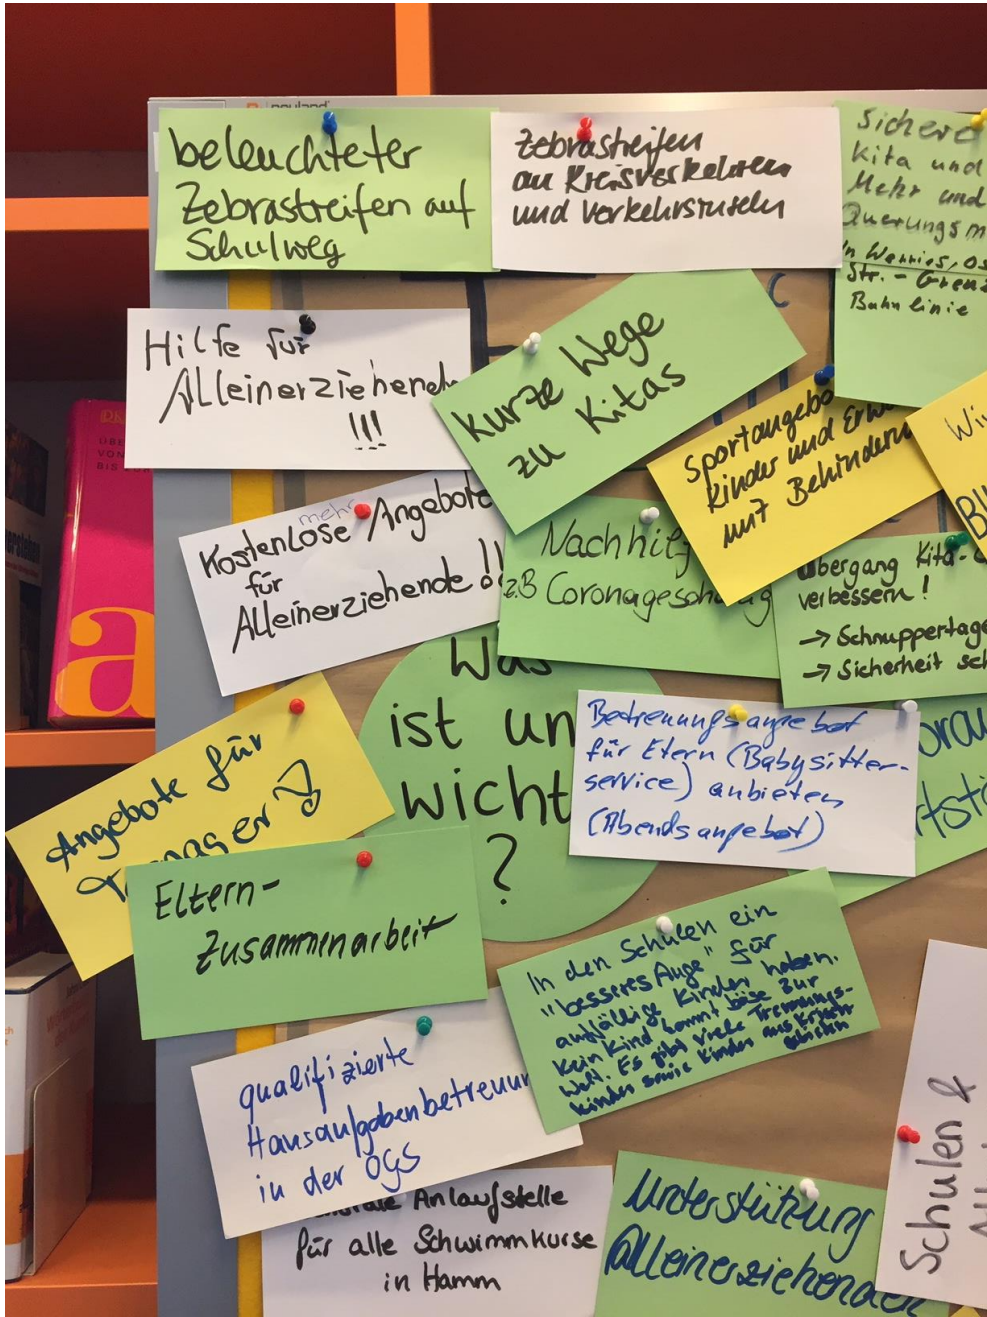 beleuchteter
Zebrastreifen auf
Schulweg
Zebrastreifen
an Kreisverkehren
und Verkehrsinseln
Sichere
Kita und
Mehr und
Querungsm
In Werries, Os
Str. - Grenz
Bahnlinie
Hilfe für
Alleinerziehende
!!!
kurze Wege
zu Kitas
Sportangebo
Kinder und Erw
mit Behinderu
Kostenlose mehr Angebote
für
Alleinerziehende!!
Nachhilf
z.B Coronagesch
Übergang Kita-
verbessern!
→ Schnuppertage
→ Sicherheit sch
Was
ist un
wicht
?
Betreuungsangebot
für Etern (Babysitter-
service) anbieten
(Abendsangebot)
Angebote für
Eltern-
Zusammenarbeit
In den Schulen ein
"besseres Auge" für
auffällige Kinder haben.
Kein Kind kommt böse zur
Welt. Es gibt viele Trennungs-
kinder sowie Kinder aus
qualifizierte
Hausaufgabenbetreuun
in der OGS
Anlaufstelle
für alle Schwimmkurse
in Hamm
Unterstützung
Alleinerziehender
Schulen &
a